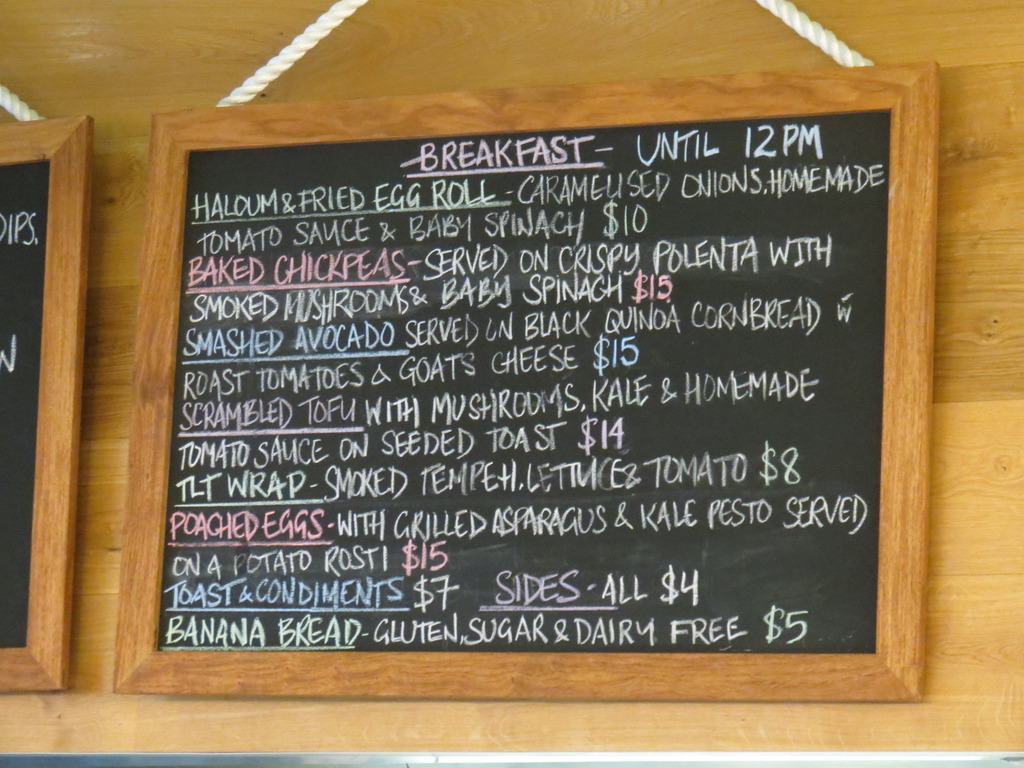 BREAKFAST - UNTIL 12PM
HALOUM & FRIED EGG ROLL - CARAMELISED ONIONS, HOMEMADE
TOMATO SAUCE & BABY SPINACH $10
BAKED CHICKPEAS - SERVED ON CRISPY POLENTA WITH
SMOKED MUSHROOMS & BABY SPINACH $15
SMASHED AVOCADO SERVED ON BLACK QUINOA CORNBREAD W
ROAST TOMATOES & GOATS CHEESE $15
SCRAMBLED TOFU WITH MUSHROOMS, KALE & HOMEMADE
TOMATO SAUCE ON SEEDED TOAST $14
TLT WRAP - SMOKED TEMPEH, LETTUCE & TOMATO $8
POACHED EGGS - WITH GRILLED ASPARAGUS & KALE PESTO SERVED
ON A POTATO ROSTI $15
TOAST & CONDIMENTS $7 SIDES - ALL $4
BANANA BREAD - GLUTEN, SUGAR & DAIRY FREE $5
DIPS,